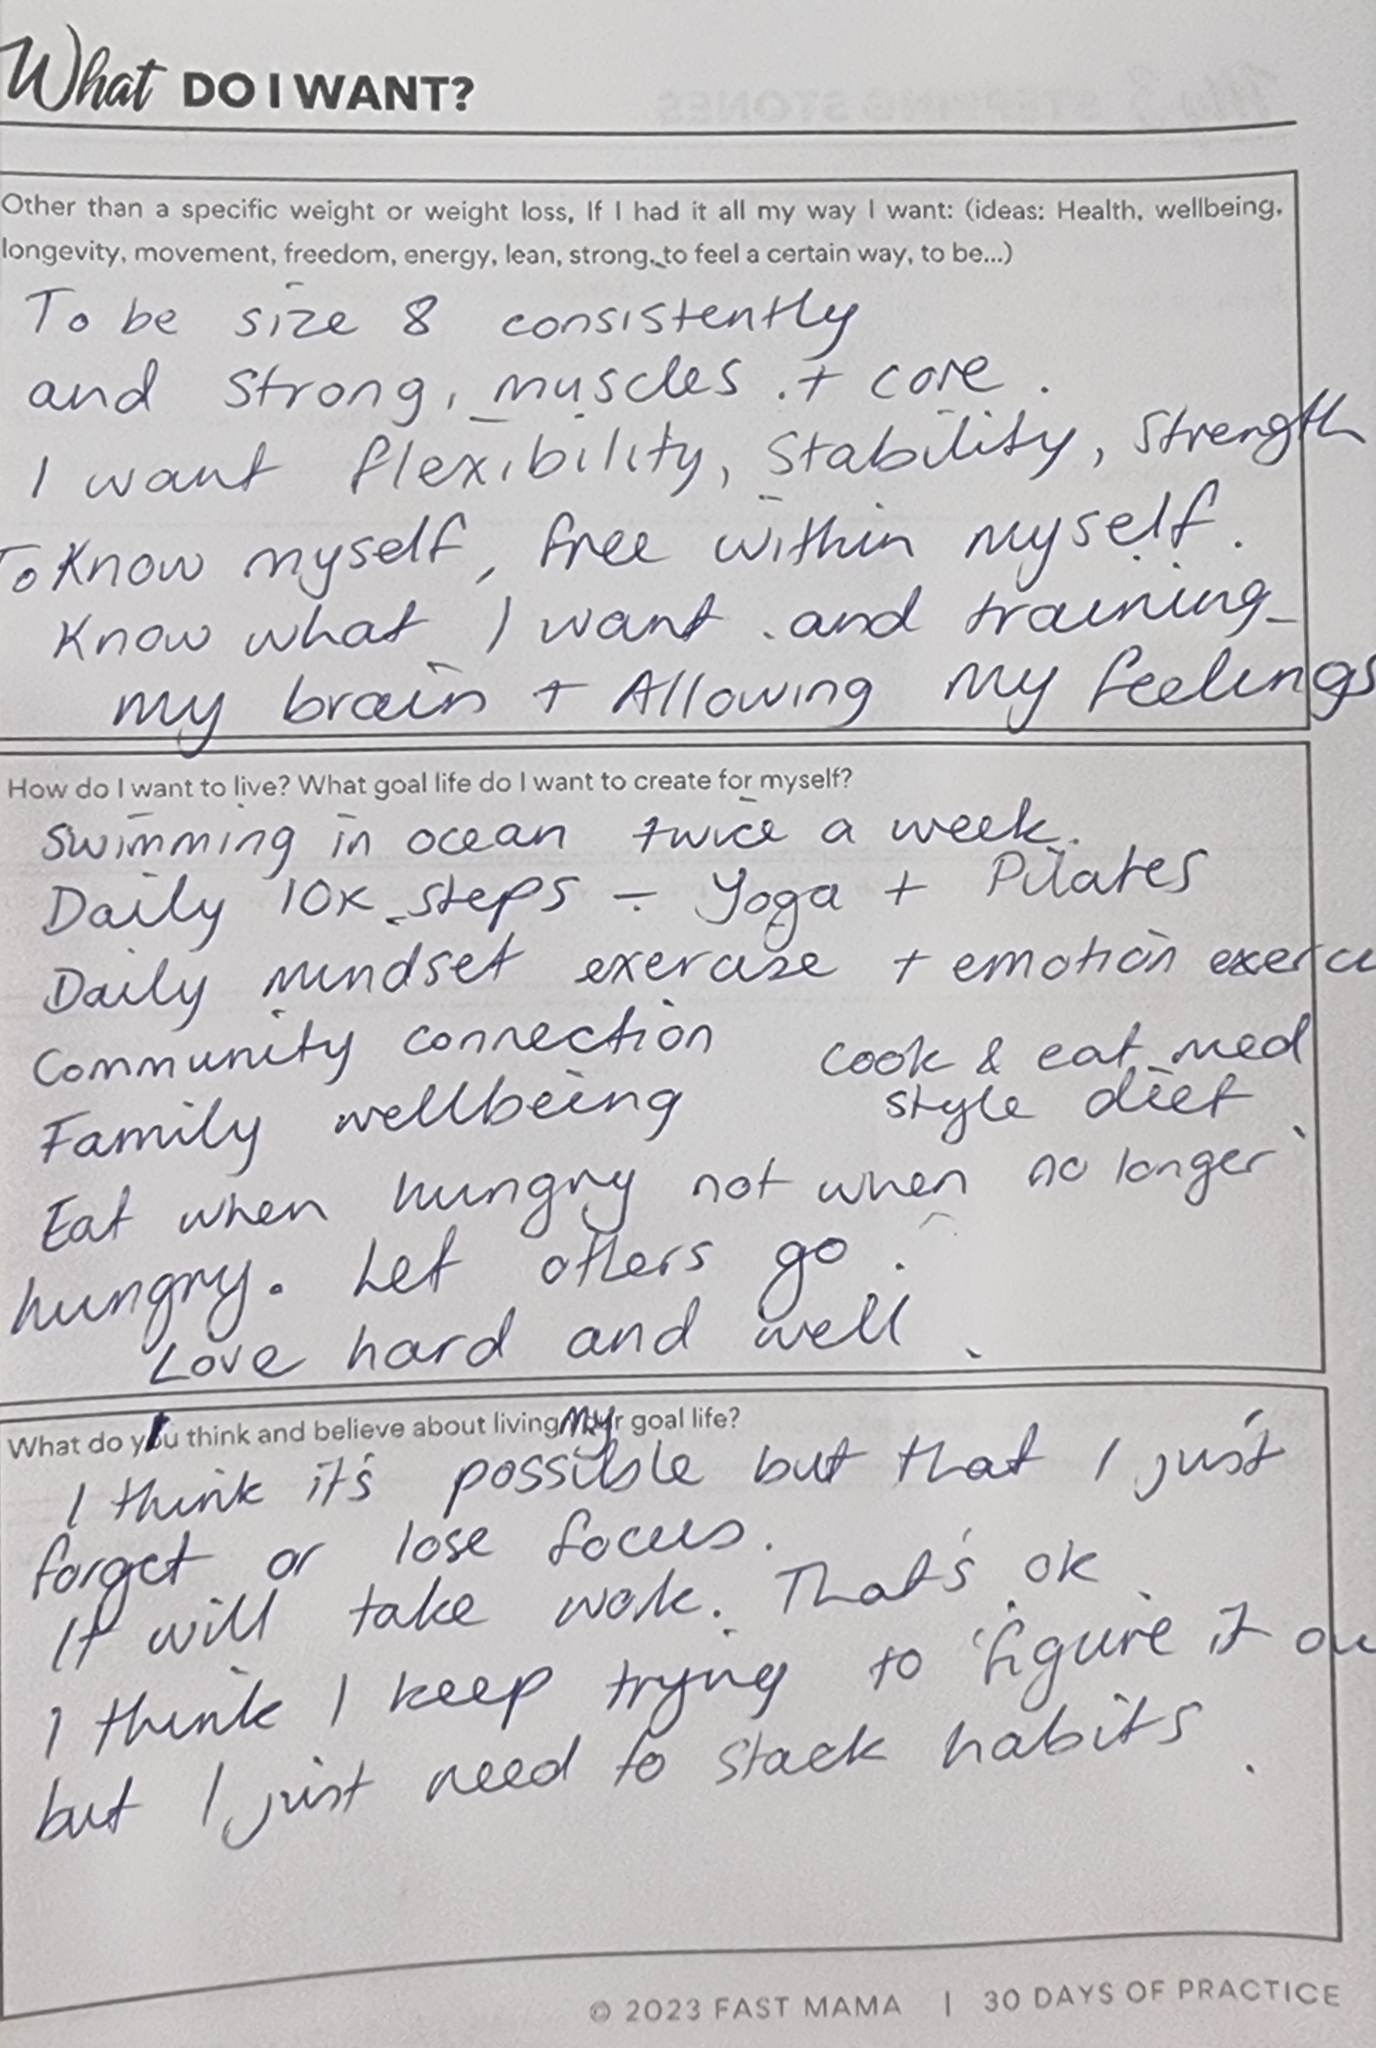 What DO I WANT?
Other than a specific weight or weight loss, If I had it all my way I want: (ideas: Health, wellbeing,
longevity, movement, freedom, energy, lean, strong, to feel a certain way, to be...)
To be size 8 consistently
and strong, muscles + core.
I want flexibility, stability, strength
To Know myself, free within myself.
Know what I want and training
my brain + Allowing my feelings
How do I want to live? What goal life do I want to create for myself?
Swimming in ocean twice a week.
Daily 10K steps - Yoga + Pilates
Daily mindset exercise + emotion exerci
Community connection
cook & eat med
style diet
Family wellbeing
Eat when hungry not when no longer
hungry. Let others go.
Love hard and well.
What do I think and believe about living My goal life?
I think it's possible but that I just
forget or lose focus.
It will take work. That's ok
I think I keep trying to 'figure it ou
but I just need to stack habits.
© 2023 FAST MAMA | 30 DAYS OF PRACTICE